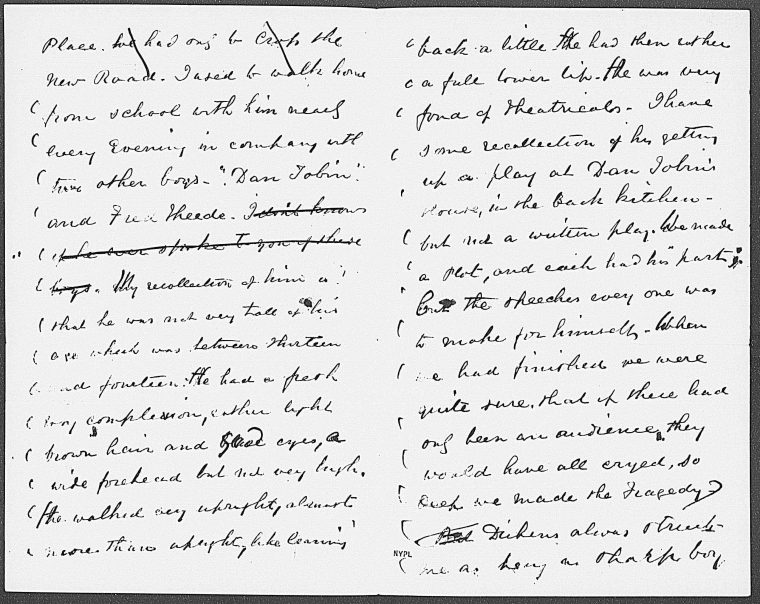 Place. We had only to cross the
New Road. I used to walk home
from school with him nearly
every Evening in company with
two other boys - "Dan Tobin"
and Fred Theede. I don't know
if he ever spoke to you of these
boys. My recollection of him is
that he was not very tall of his
age which was between thirteen
and fourteen. He had a fresh
complexion, rather light
brown hair and eyes, a
wide forehead but not very high.
He walked very upright, almost
more than upright, like leaning
back a little. He had then rather
a full lower lip. He was very
fond of theatricals. I have
some recollection of his getting
up a play at Dan Tobin's
House, in the back kitchen -
but not a written play. We made
a Plot, and each had his part;
but the speeches every one was
to make for himself. When
we had finished we were
quite sure, that if there had
only been an audience, they
would have all cryed, so
deep we made the Tragedy
Dickens always struck
me as being as sharp boy
NYPL